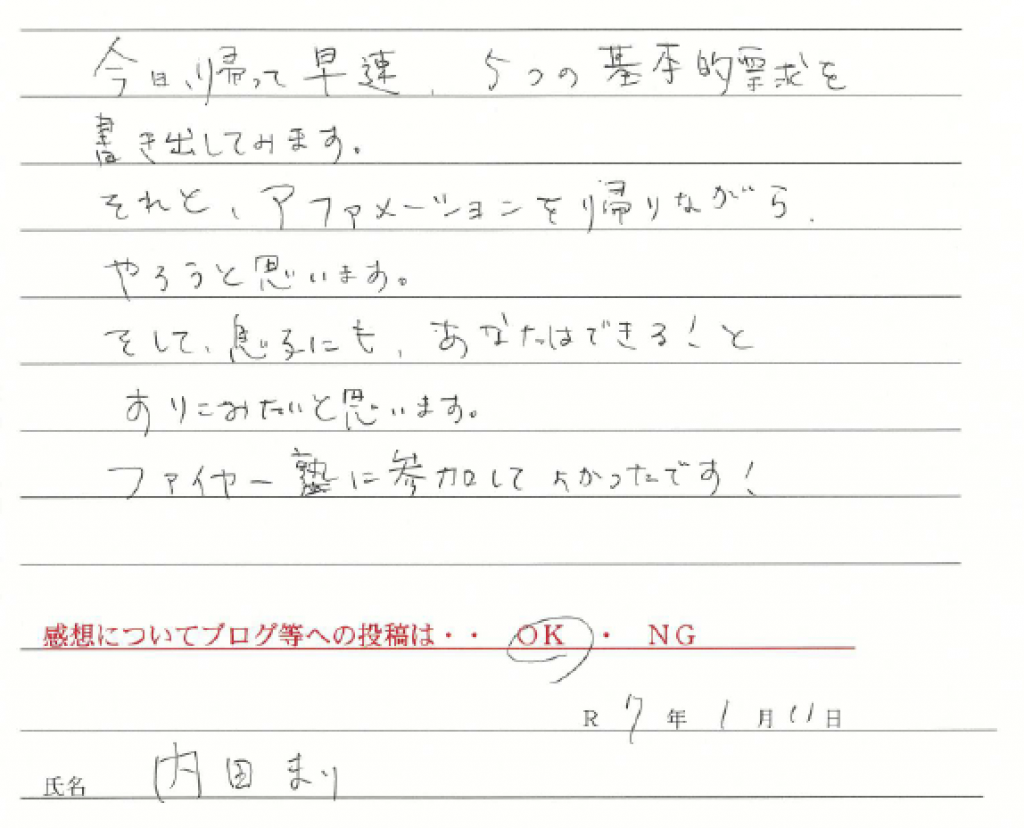 今日、帰って早速、5つの基本的要求を
書き出してみます。
それと、アファメーションを帰りながら、
やろうと思います。
そして、息子にも、あなたはできる!と
すりこみたいと思います。
ファイヤー塾に参加してよかったです!
感想についてブログ等への投稿は・・ OK ・ NG
R 7 年 1 月 11 日
氏名 内田 まり